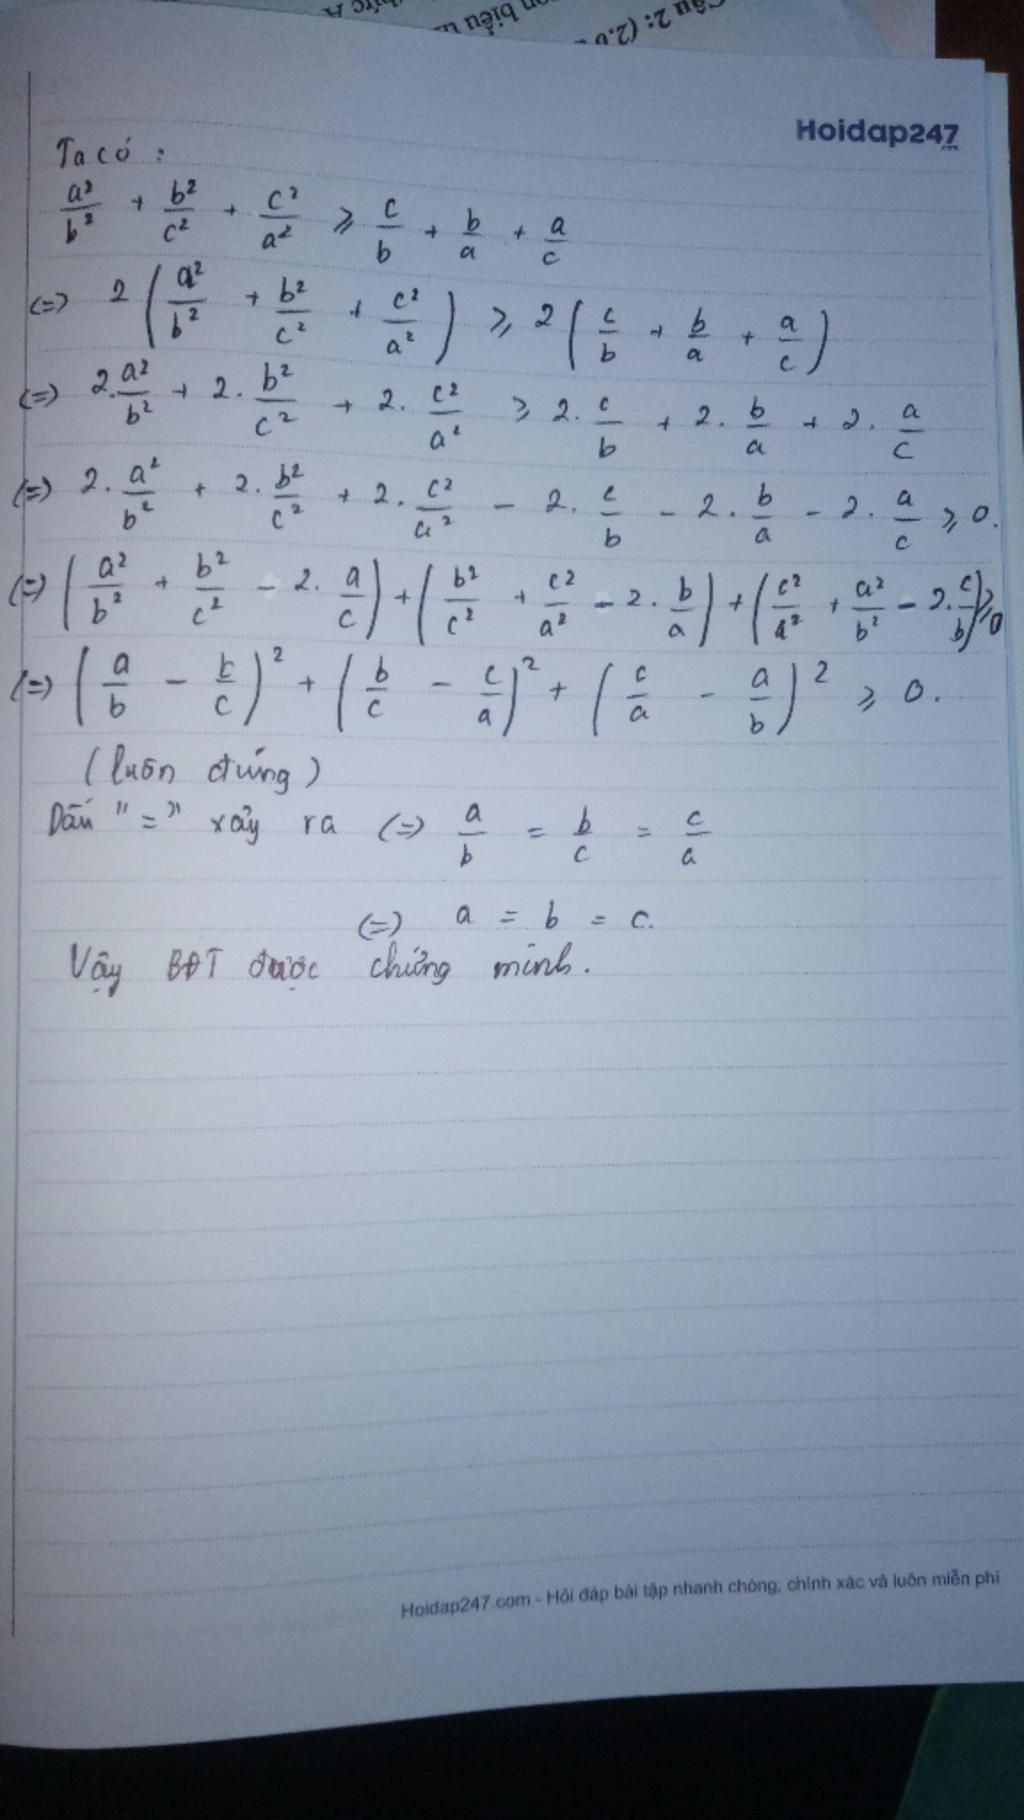 Câu 2: (2.0
biểu
Hoidap247
.com
Ta có :
a²/b² + b²/c² + c²/a² ≥ c/b + b/a + a/c
(=) 2 (a²/b² + b²/c² + c²/a²) ≥ 2 (c/b + b/a + a/c)
(=) 2.a²/b² + 2.b²/c² + 2.c²/a² ≥ 2.c/b + 2.b/a + 2.a/c
(=) 2.a²/b² + 2.b²/c² + 2.c²/a² - 2.c/b - 2.b/a - 2.a/c ≥ 0.
(=) (a²/b² + b²/c² - 2.a/c) + (b²/c² + c²/a² - 2.b/a) + (c²/a² + a²/b² - 2.c/b) ≥ 0
(=) (a/b - b/c)² + (b/c - c/a)² + (c/a - a/b)² ≥ 0.
(luôn đúng)
Dấu "=" xảy ra (=) a/b = b/c = c/a
(=) a = b = c.
Vậy BĐT được chứng minh.
Hoidap247.com - Hỏi đáp bài tập nhanh chóng, chính xác và luôn miễn phí